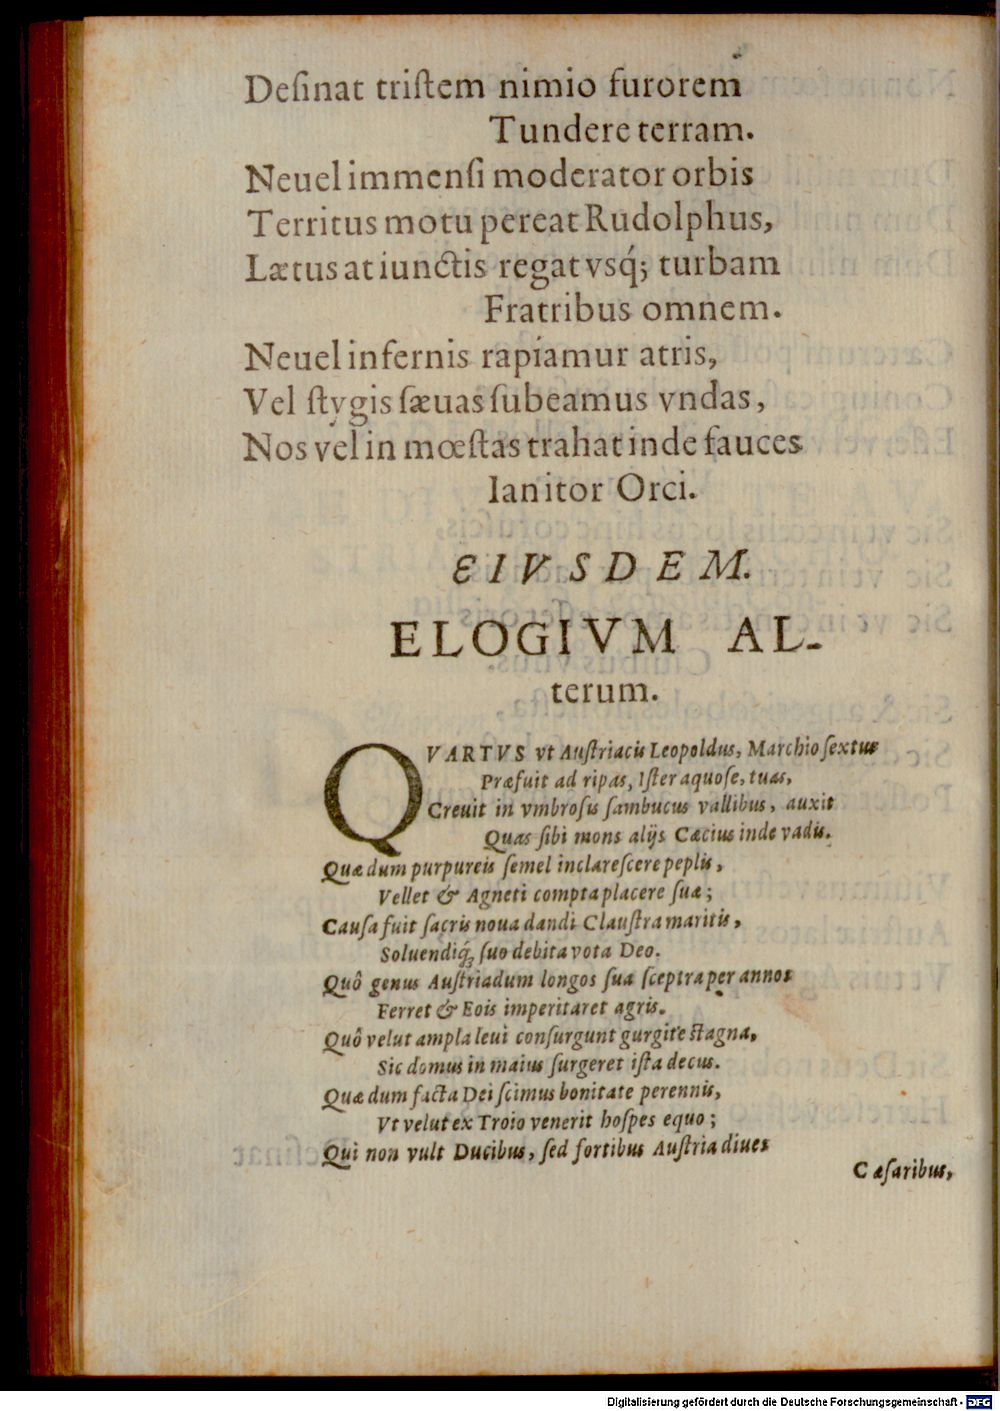 Deſinat triſtem nimio furorem
Tundere terram.
Neuel immenſi moderator orbis
Territus motu pereat Rudolphus,
Lætus at iunctis regat vsq́; turbam
Fratribus omnem.
Neuel infernis rapiamur atris,
Vel ſtygis ſæuas ſubeamus vndas,
Nos vel in mœſtas trahat inde fauces
Ianitor Orci.
EIVSDEM.
ELOGIVM AL-
terum.
QVARTVS vt Auſtriacis Leopoldus, Marchio ſextus
Præfuit ad ripas, Iſter aquoſe, tuas,
Creuit in vmbroſis ſambucus vallibus, auxit
Quas ſibi mons alijs Cæcius inde vadis.
Quæ dum purpureis ſemel inclareſcere peplis,
Vellet & Agneti compta placere ſuæ;
Cauſa fuit ſacris noua dandi Clauſtra maritis,
Soluendiq́; ſuo debita vota Deo.
Quô genus Auſtriadum longos ſua ſceptra per annos
Ferret & Eois imperitaret agris.
Quô velut ampla leui conſurgunt gurgite ſtagna,
Sic domus in maius ſurgeret iſta decus.
Quæ dum facta Dei ſcimus bonitate perennis,
Vt velut ex Troio venerit hoſpes equo;
Qui non vult Ducibus, ſed fortibus Auſtria diues
Cæſaribus,
Digitalisierung gefördert durch die Deutsche Forschungsgemeinschaft - DFG